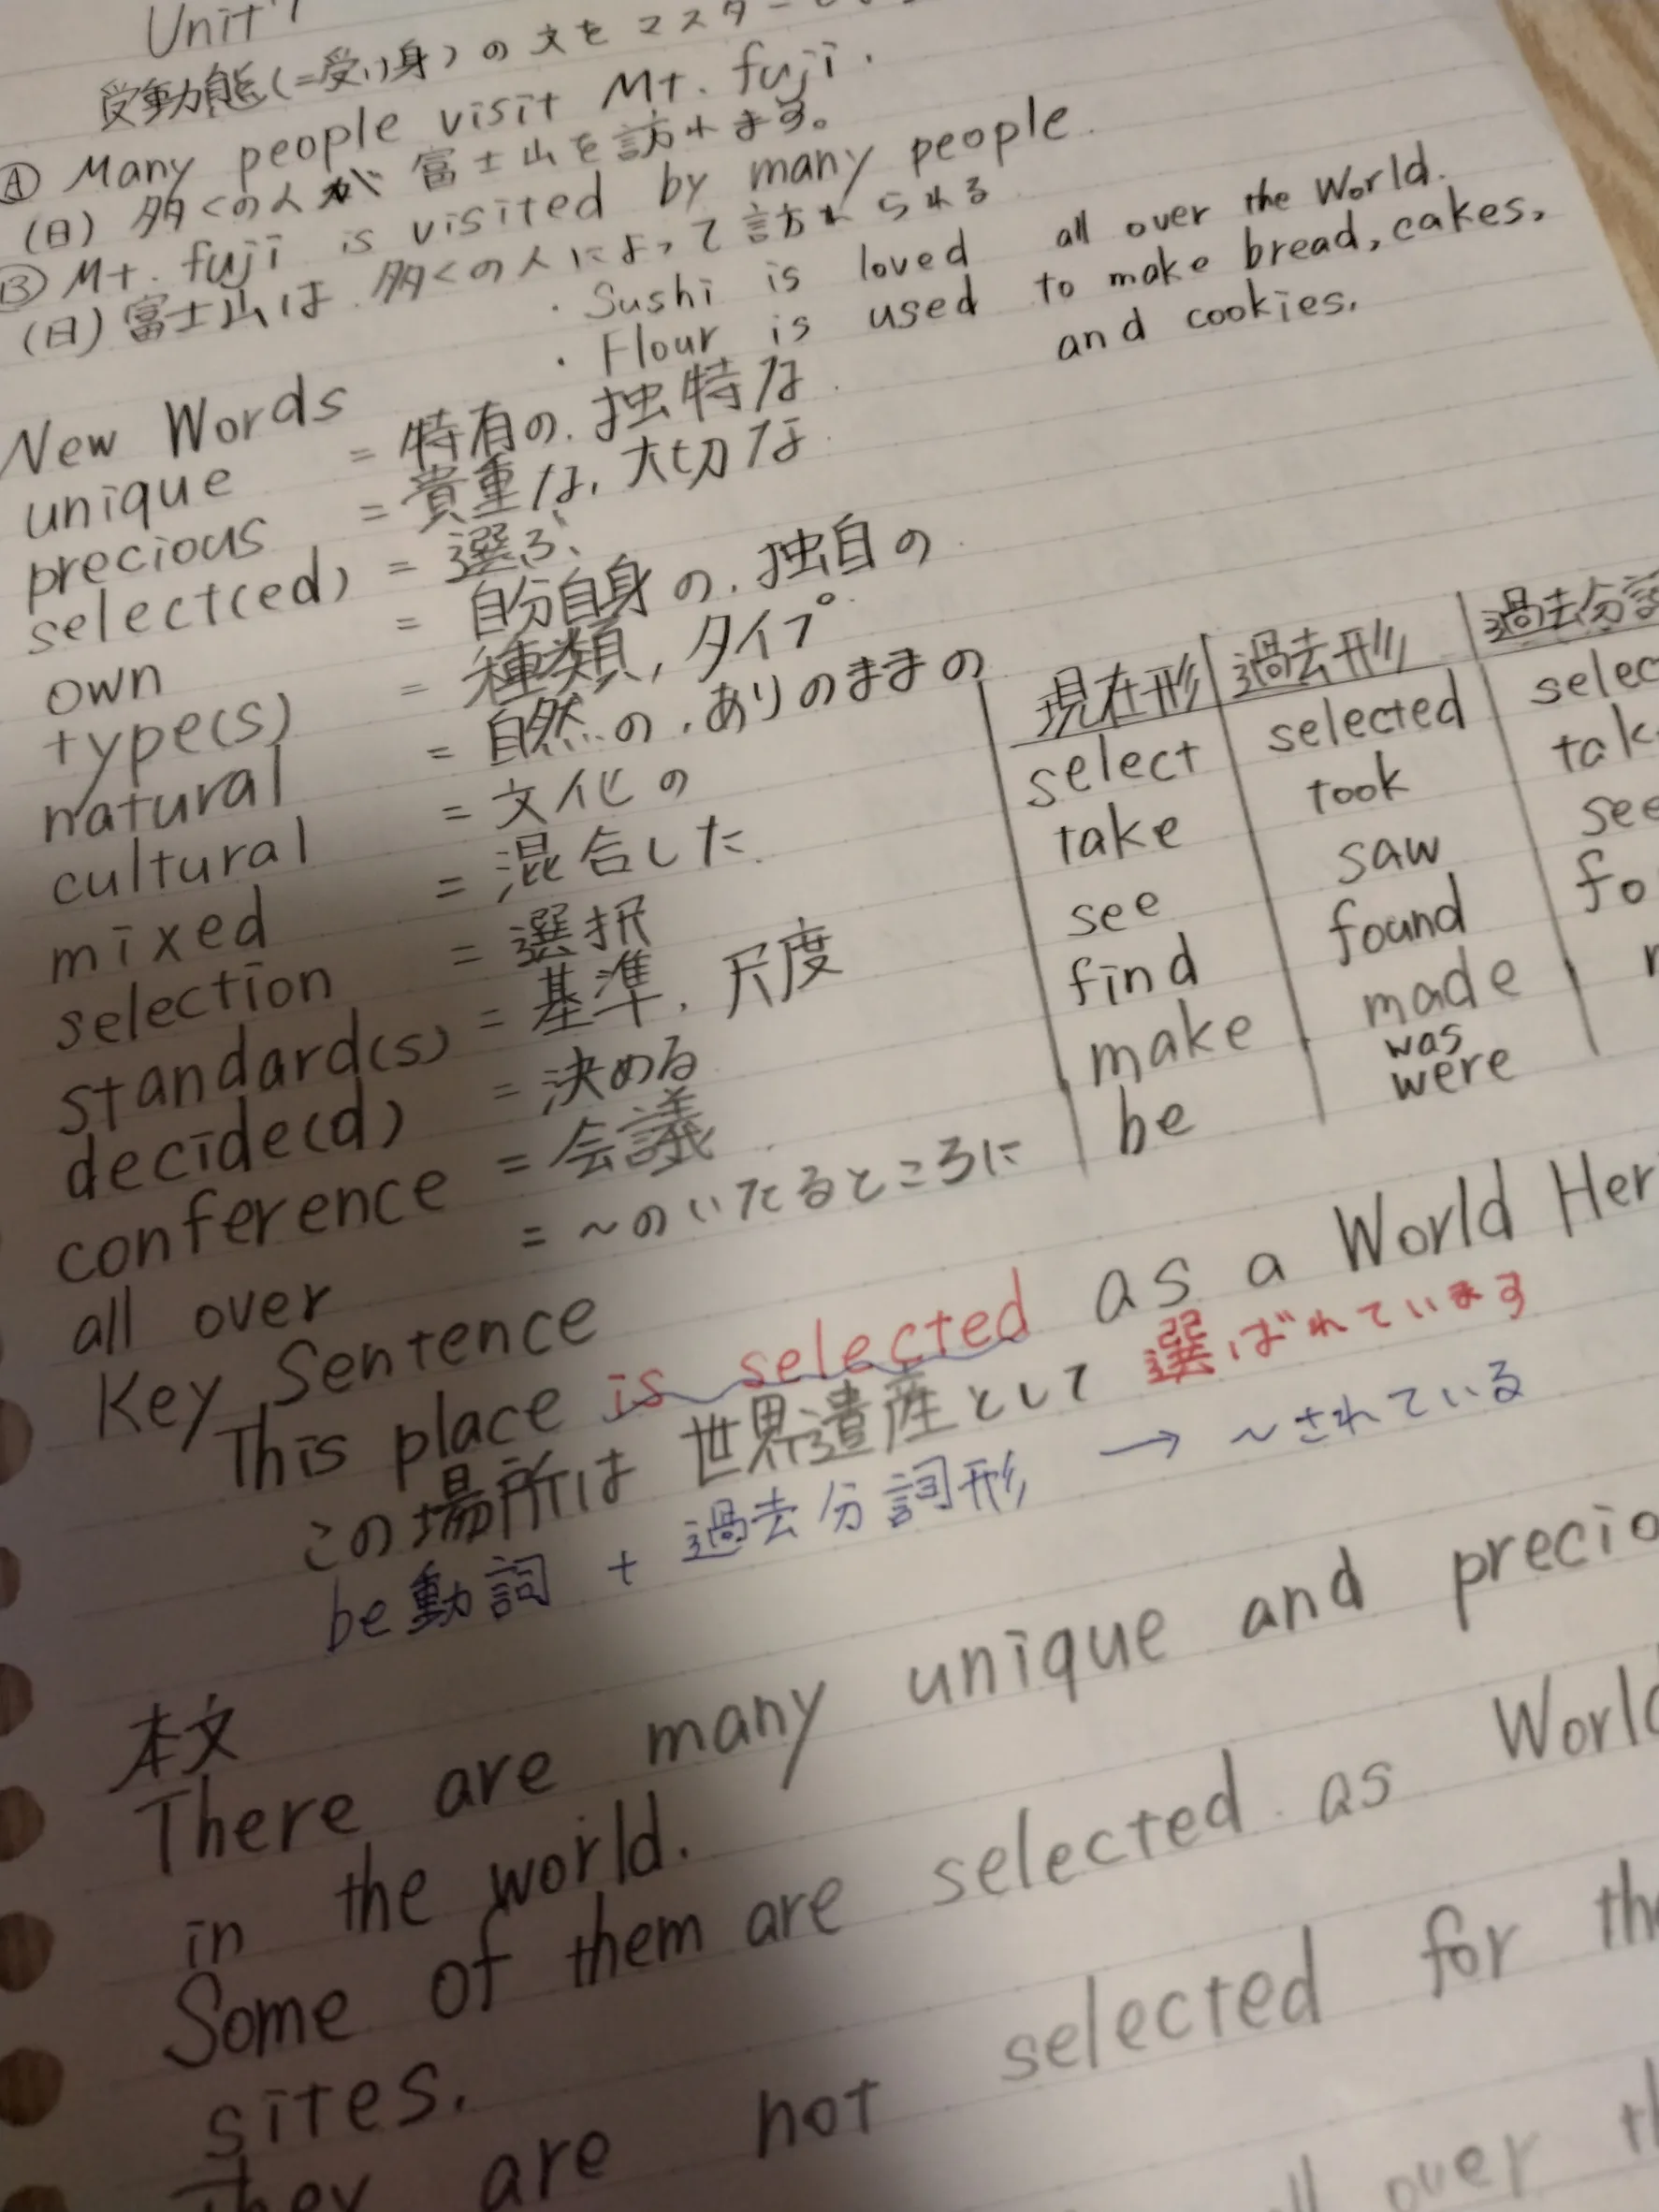 Unit 7
受動態(=受け身)の文をマスター
Ⓐ Many people visit Mt. fuji.
(日) 多くの人が富士山を訪れます。
Ⓑ Mt. fuji is visited by many people.
(日) 富士山は多くの人によって訪れられる
・Sushi is loved all over the World.
・Flour is used to make bread, cakes,
and cookies.
New Words
unique = 特有の, 独特な
precious = 貴重な, 大切な
select(ed) = 選ぶ
own = 自分自身の, 独自の
type(s) = 種類, タイプ
natural = 自然の, ありのままの
cultural = 文化の
mixed = 混合した
selection = 選択
standard(s) = 基準, 尺度
decide(d) = 決める
conference = 会議
all over = ~のいたるところに
現在形 過去形 過去分詞
select selected selec
take took tak
see saw see
find found fo
make made
be was
were
Key Sentence
This place is selected as a World Her
この場所は世界遺産として選ばれています
be動詞 + 過去分詞形 → ~されている
本文
There are many unique and precio
in the world.
Some of them are selected as World
sites.
They are not selected for the
over